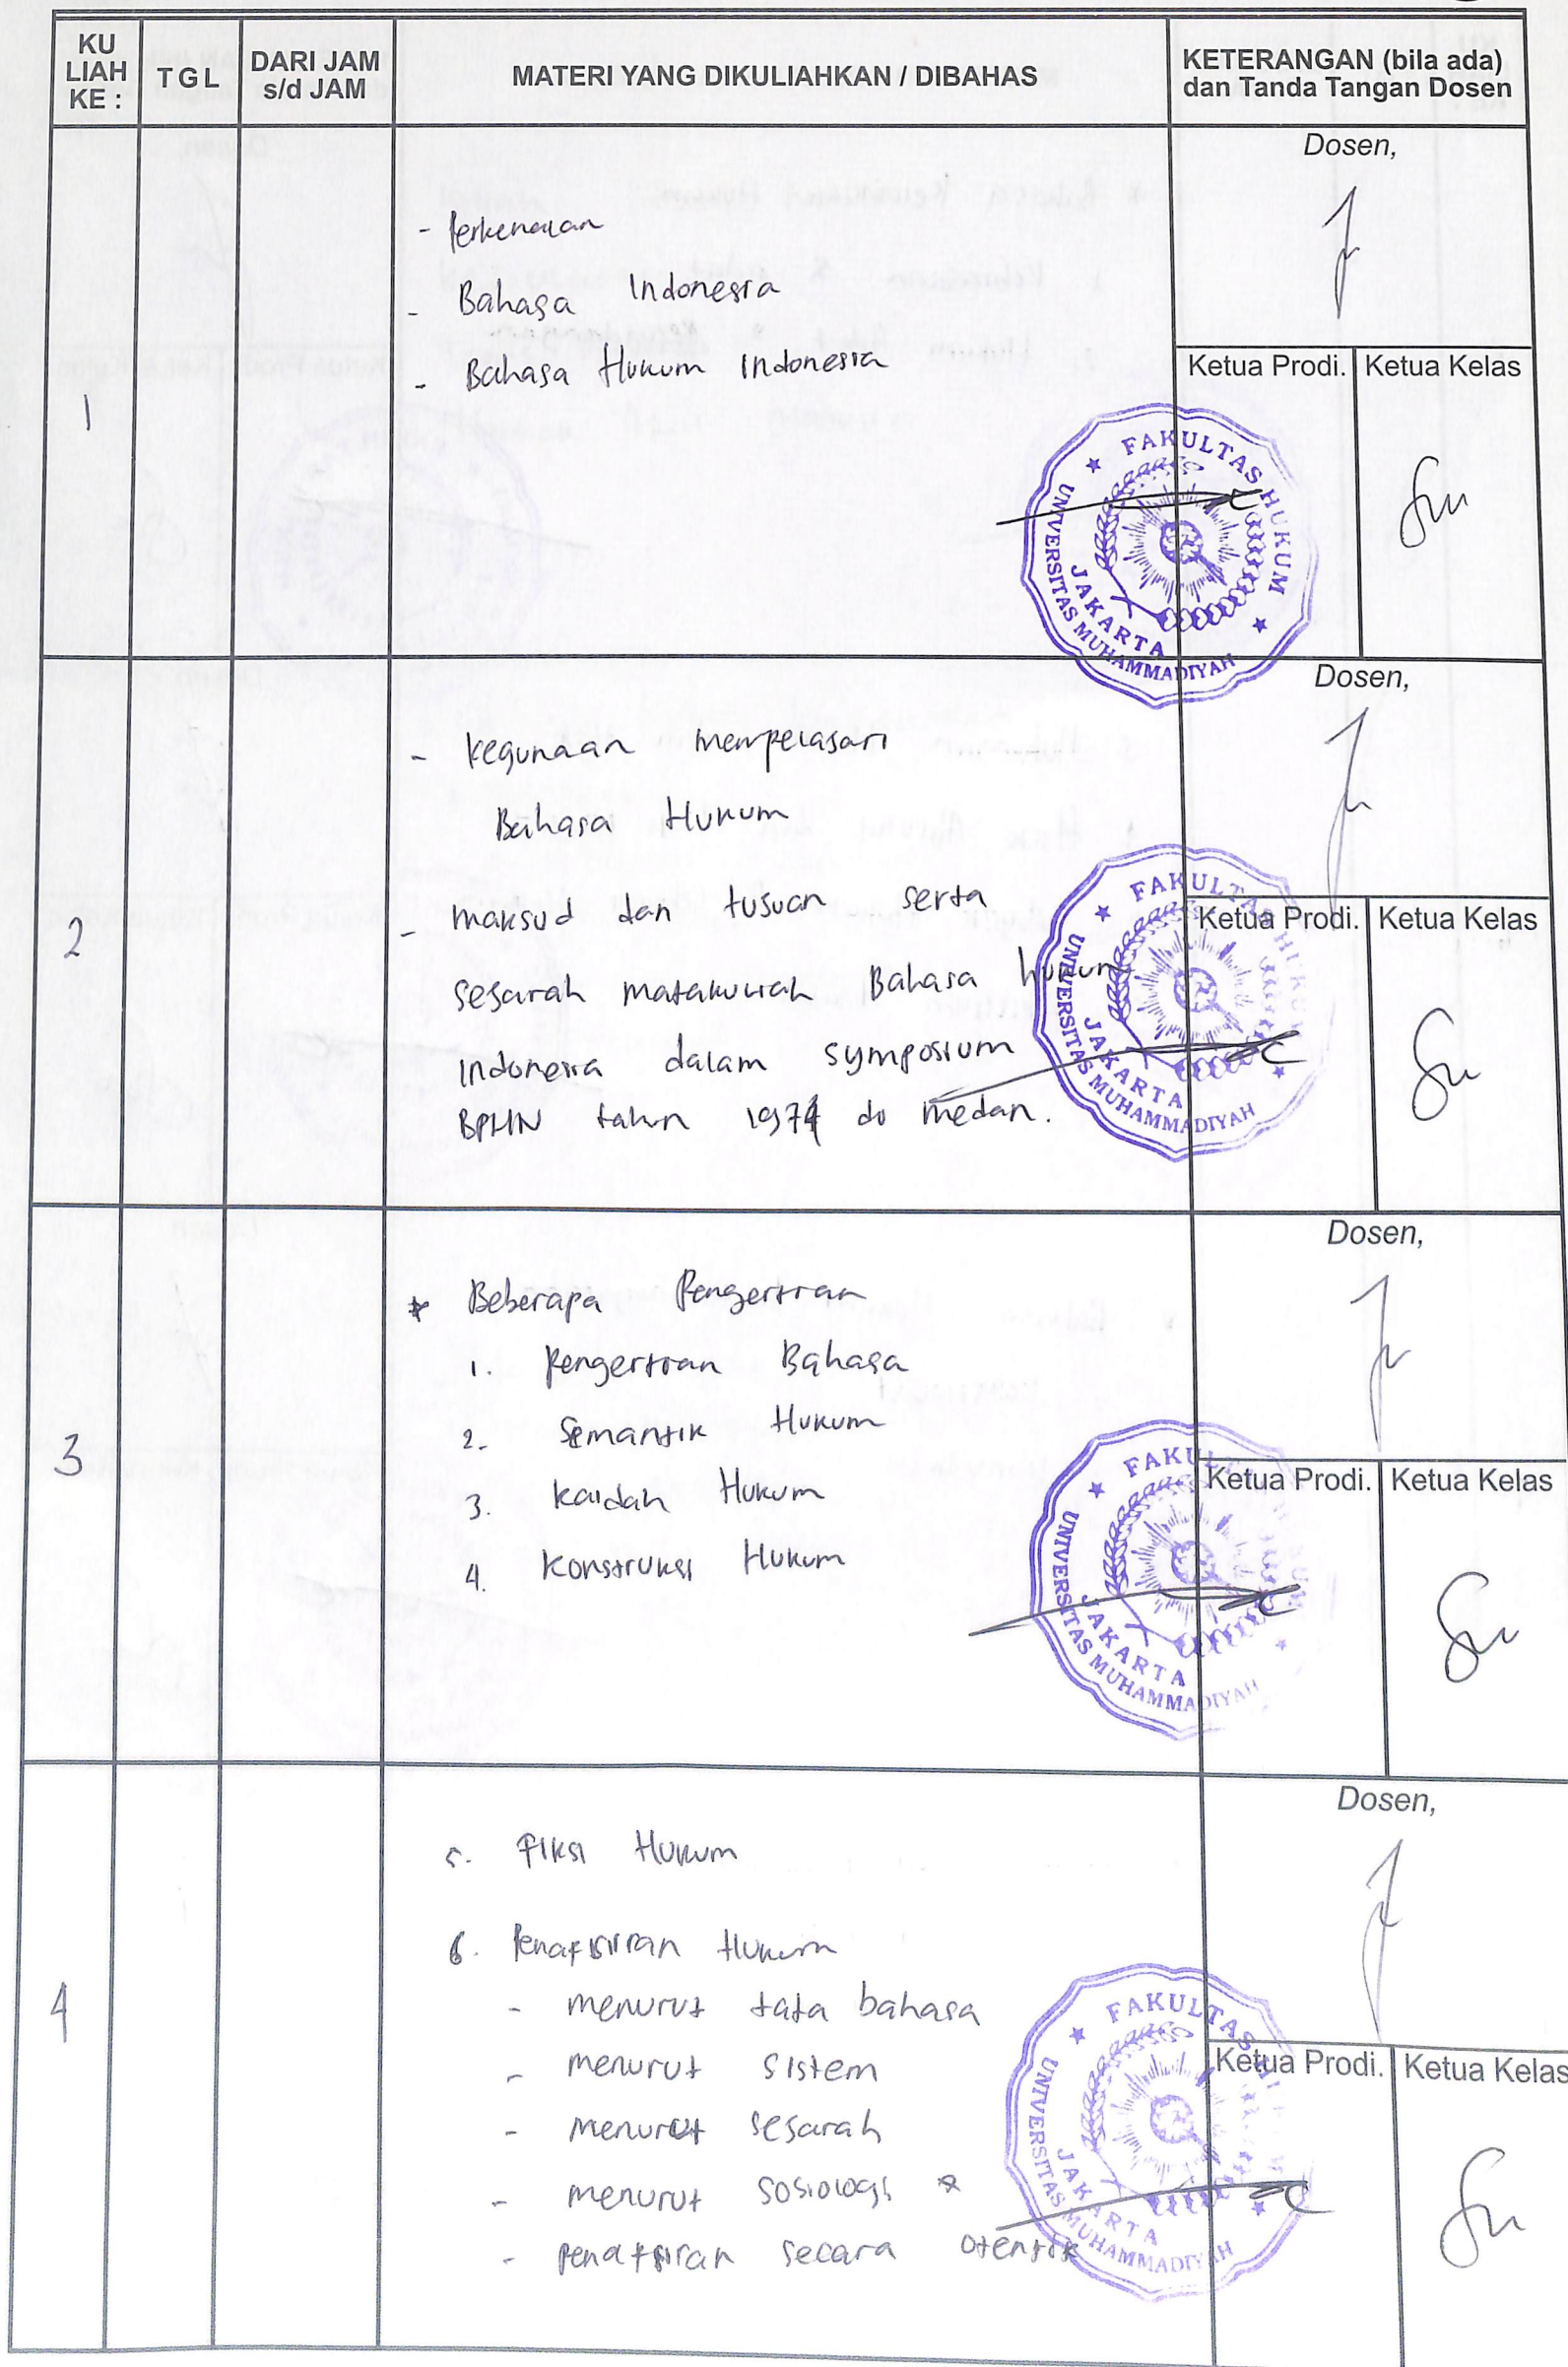 KU
LIAH
KE :
TGL
DARI JAM
s/d JAM
MATERI YANG DIKULIAHKAN / DIBAHAS
KETERANGAN (bila ada)
dan Tanda Tangan Dosen
1
- Perkenalan
- Bahasa Indonesia
- Bahasa Hukum Indonesia
Dosen,
Ketua Prodi.
Ketua Kelas
FAKULTAS HUKUM
UNIVERSITAS MUHAMMADIYAH
JAKARTA
2
- Kegunaan mempelajari
Bahasa Hukum
- maksud dan tujuan serta
sejarah matakuliah Bahasa hukum
Indonesia dalam symposium
BPHN tahun 1974 di medan.
Dosen,
Ketua Prodi.
Ketua Kelas
FAKULTAS HUKUM
UNIVERSITAS MUHAMMADIYAH
JAKARTA
3
* Beberapa Pengertian
1. Pengertian Bahasa
2. Semantik Hukum
3. Kaidah Hukum
4. Konstruksi Hukum
Dosen,
Ketua Prodi.
Ketua Kelas
FAKULTAS HUKUM
UNIVERSITAS MUHAMMADIYAH
JAKARTA
4
5. Fiksi Hukum
6. Penafsiran Hukum
- menurut tata bahasa
- menurut sistem
- menurut sejarah
- menurut sosiologi *
- Penafsiran secara otentik
Dosen,
Ketua Prodi.
Ketua Kelas
FAKULTAS
UNIVERSITAS MUHAMMADIYAH
JAKARTA